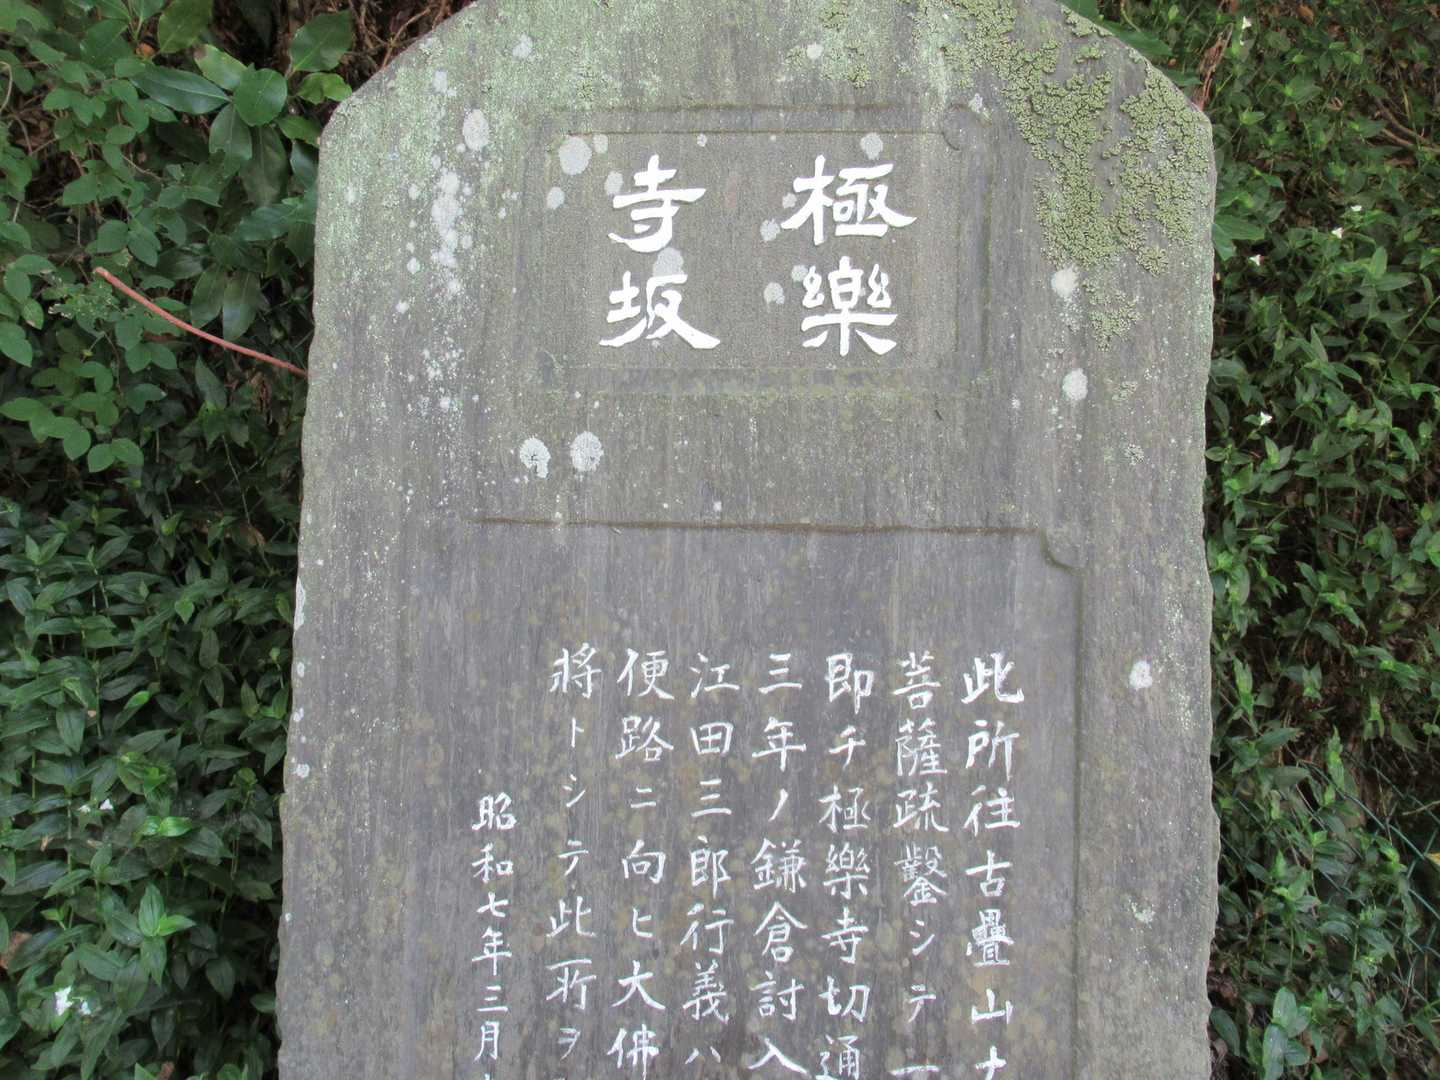 極樂
寺坂
此所往古疊山ナ
菩薩疏鑿シテ一
即チ極樂寺切通
三年ノ鎌倉討入
江田三郎行義ハ
便路ニ向ヒ大佛
將トシテ此所ヲ
昭和七年三月